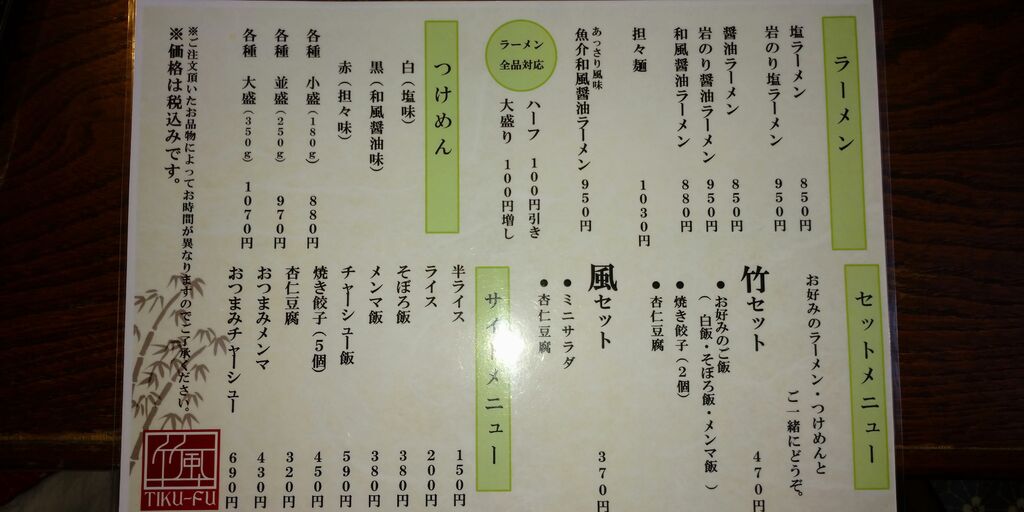 ラーメン
塩ラーメン 850円
岩のり塩ラーメン 950円
醤油ラーメン 850円
岩のり醤油ラーメン 950円
和風醤油ラーメン 880円
担々麺 1030円
あっさり風味
魚介和風醤油ラーメン 950円
ラーメン
全品対応
ハーフ 100円引き
大盛り 100円増し
つけめん
白(塩味)
黒(和風醤油味)
赤(担々味)
各種 小盛(180g) 880円
各種 並盛(250g) 970円
各種 大盛(350g) 1070円
セットメニュー
お好みのラーメン・つけめんと
ご一緒にどうぞ。
竹セット 470円
●お好みのご飯
(白飯・そぼろ飯・メンマ飯)
●焼き餃子(2個)
●杏仁豆腐
風セット 370円
●ミニサラダ
●杏仁豆腐
サイドメニュー
半ライス 150円
ライス 200円
そぼろ飯 380円
メンマ飯 380円
チャーシュー飯 590円
焼き餃子(5個) 450円
杏仁豆腐 320円
おつまみメンマ 430円
おつまみチャーシュー 690円
※ご注文頂いたお品物によってお時間が異なりますのでご了承ください。
※価格は税込みです。
竹風
TIKU-FU